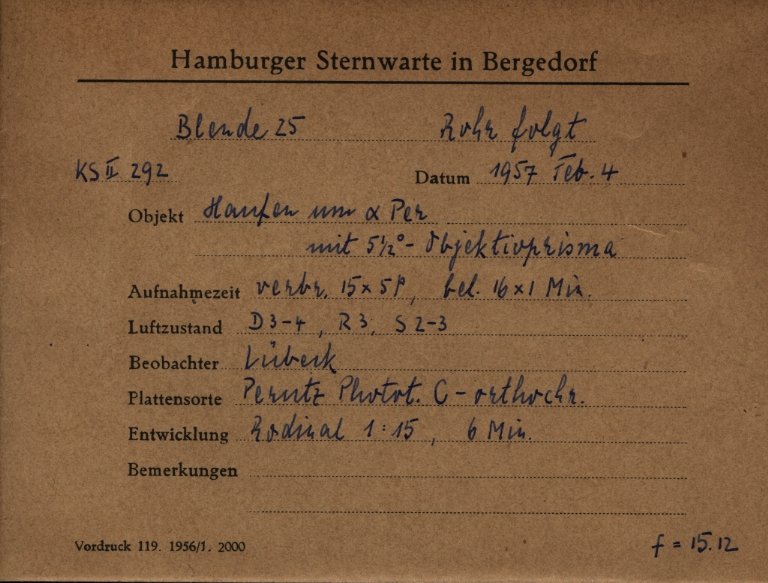 Hamburger Sternwarte in Bergedorf
Blende 25 Rohr folgt
KS II 292 Datum 1957 Feb. 4
Objekt Haufen um α Per
mit 5½°- Objektivprisma
Aufnahmezeit verbr. 15x5P, bel. 16x1 Min.
Luftzustand D3-4, R3, S2-3
Beobachter Lübeck
Plattensorte Perutz Photot. C-orthochr.
Entwicklung Rodinal 1:15, 6 Min.
Bemerkungen
Vordruck 119. 1956/1. 2000 f = 15.12